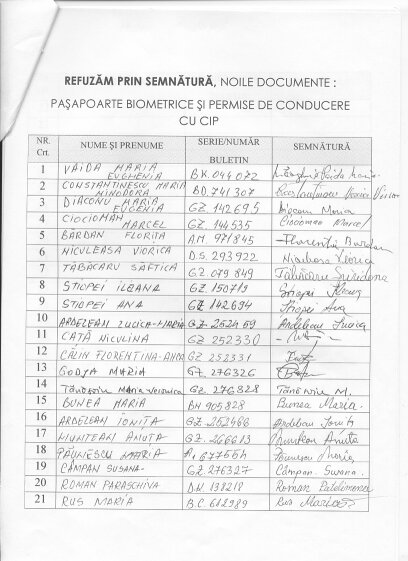 REFUZĂM PRIN SEMNĂTURĂ, NOILE DOCUMENTE :
PAŞAPOARTE BIOMETRICE ŞI PERMISE DE CONDUCERE
CU CIP
NR. Crt. NUME ŞI PRENUME SERIE/NUMĂR BULETIN SEMNĂTURĂ
1 VAIDA MARIA EVGHENIA BK.044072
2 CONSTANTINESCU MARIA MINODORA BD.741307
3 DIACONU MARIA EUGENIA GZ.142695 Diaconu Maria
4 CIOCIOMAN MARCEL GZ.144535 Ciocioman Marcel
5 BARDAN FLORIŢA AM. 971845
6 NICULEASA VIORICA DS.293922
7 TABACARU SAFTICA GZ 079849
8 STIOPEI ILEANA GZ.150719 Stiopei
9 STIOPEI ANA GZ 142694 Stiopei Ana
10 ARDELEAN LUCICA-MARIA GZ.252459 Ardelean Lucica
11 CATĂ NICULINA GZ 252330
12 CĂLIN FLORENTINA-ANCA GZ 252331
13 GODJA MARIA GZ.276326
14 Maria Veronica GZ.276328
15 BUNEA MARIA BH 905828 Bunea Maria
16 ARDELEAN IONIŢA GZ.252466 Ardelean
17 MUNTEAN ANUŢA GZ.266613 Muntean Anuta
18 PĂUNESCU MARIA 677554 Păunescu Maria
19 CÂMPAN SUSANA GZ.276327 Câmpan Susana.
20 ROMAN PARASCHIVA DH.138218 Roman
21 RUS MARIA BC.612989 Rus Maria